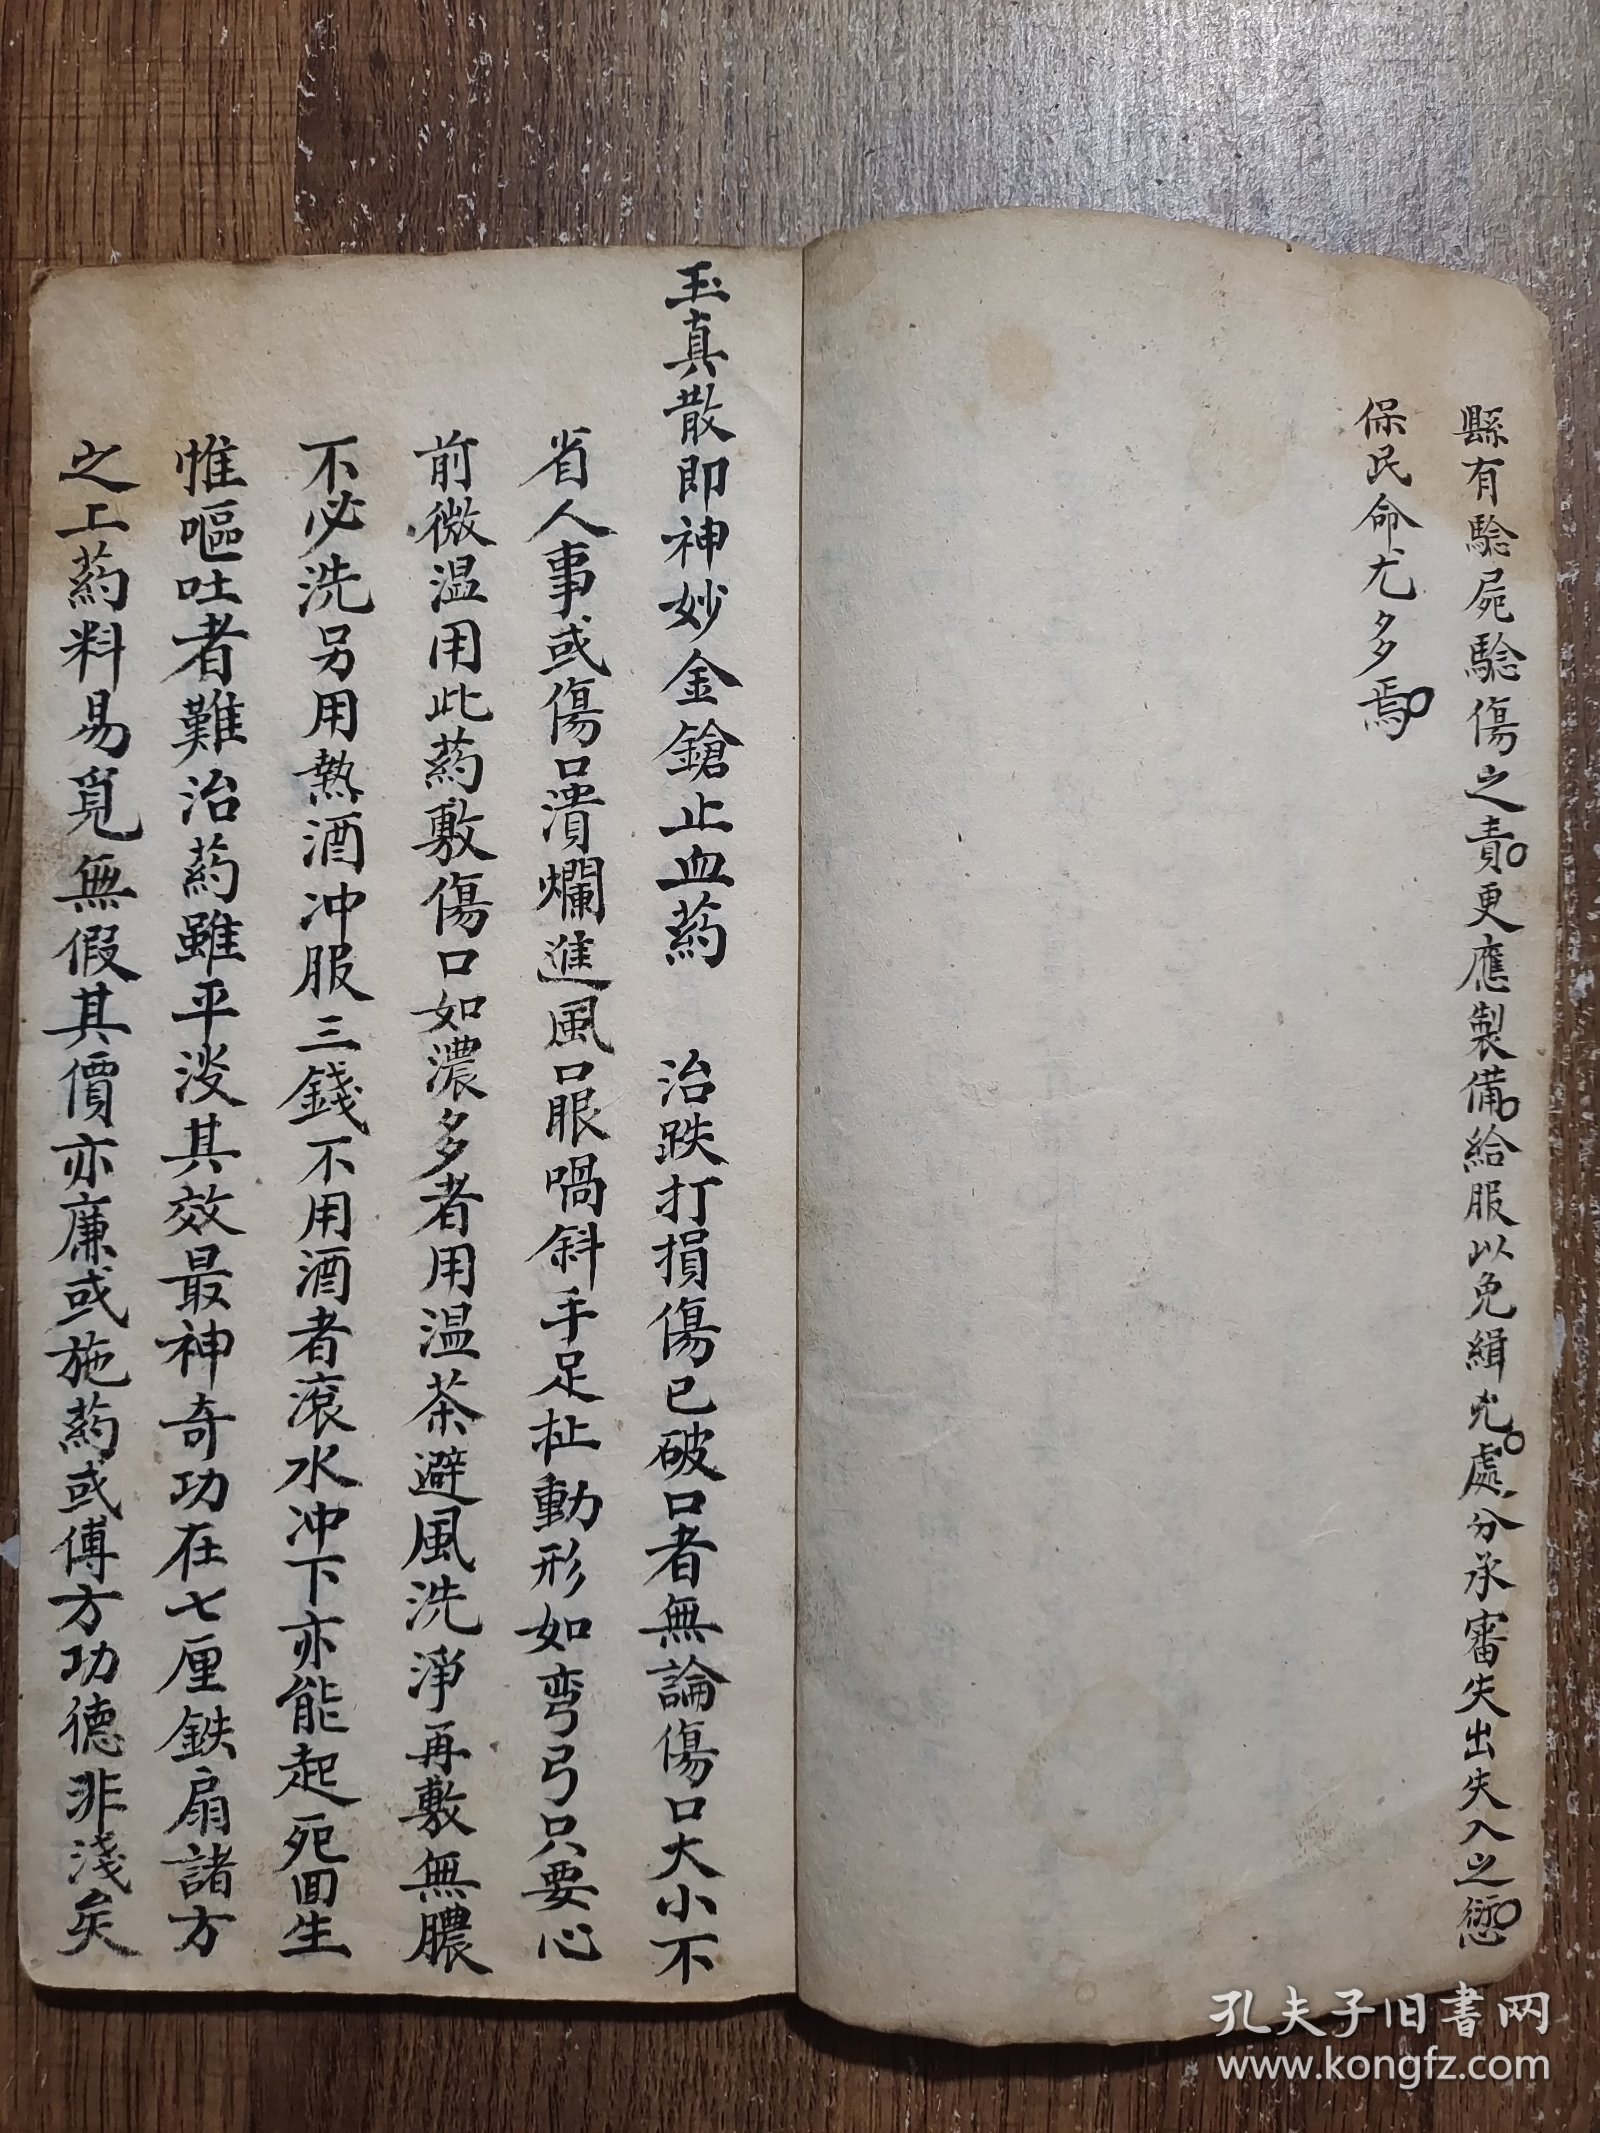 縣有騐屍騐傷之責更應製備給服以免緝兇處分承審失出失入之愆
保民命尤多焉
玉真散即神妙金鎗止血葯　治跌打損傷已破口者無論傷口大小不
省人事或傷口潰爛進風口眼喎斜手足扯動形如弯弓只要心
前微温用此葯敷傷口如濃多者用温茶避風洗淨再敷無膿
不必洗另用熱酒冲服三錢不用酒者滾水冲下亦能起死回生
惟嘔吐者難治葯雖平淡其效最神奇功在七厘鉄扇諸方
之上葯料易覓無假其價亦廉或施葯或傳方功德非淺矣
孔夫子旧书网
www.kongfz.com